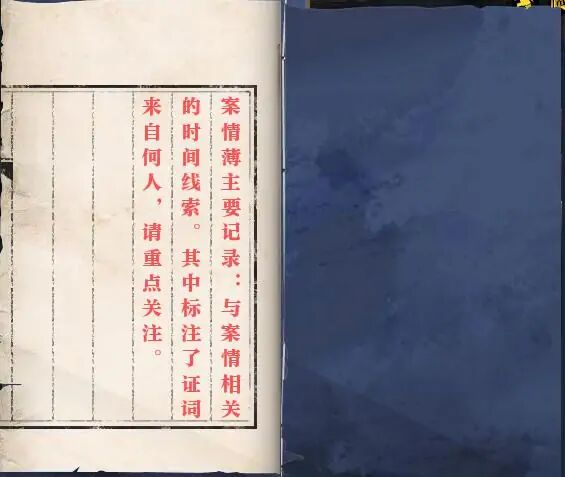 案情薄主要记录：与案情相关
的时间线索。其中标注了证词
来自何人，请重点关注。